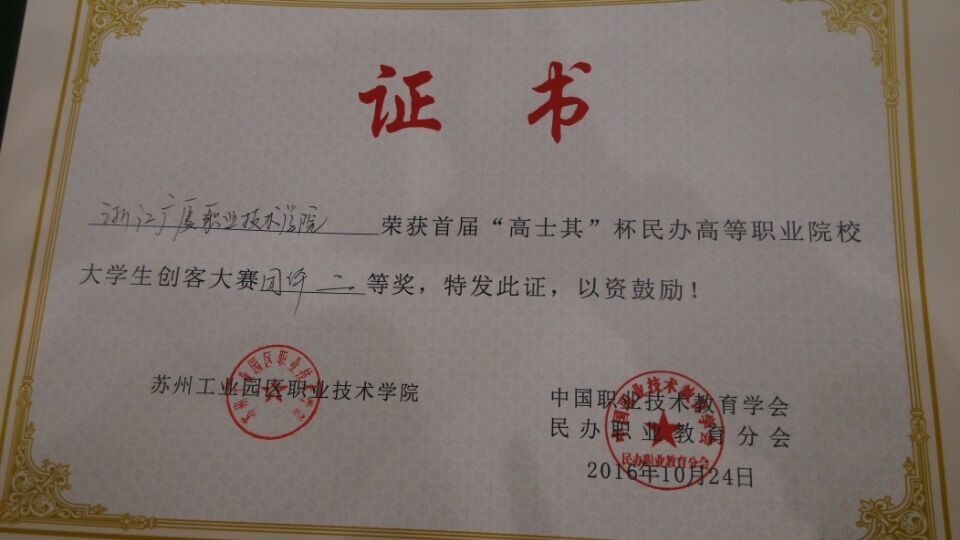 证书
浙江广厦职业技术学院 荣获首届“高士其”杯民办高等职业院校
大学生创客大赛团体 二 等奖，特发此证，以资鼓励！
苏州工业园区职业技术学院
苏州工业园区职业技术学院
中国职业技术教育学会
民办职业教育分会
2016年10月24日
中国职业技术教育学会
民办职业教育分会